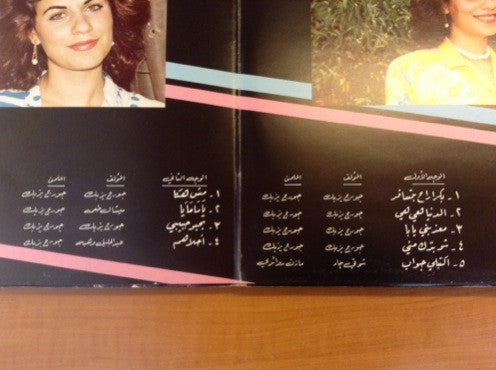 الوجه الأول المؤلف الملحن
١ - بكرا راح تسافر جورج يزبك جورج يزبك
٢ - الدنيا هي هي جورج يزبك جورج يزبك
٣ - معذبني يابا جورج يزبك جورج يزبك
٤ - شو بدك مني جورج يزبك جورج يزبك
٥ - اكتبلي جواب شوقي مازن
الوجه الثاني المؤلف الملحن
١ - مش هكا جورج يزبك جورج يزبك
٢ - ياماما يا ميشال جورج يزبك
٣ - حبيبي جورج يزبك جورج يزبك
٤ - أحلاهم عبد الجليل وهبي جورج يزبك